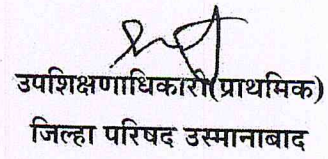 उपशिक्षणाधिकारी(प्राथमिक)
जिल्हा परिषद उस्मानाबाद